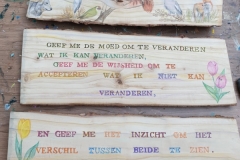 GEEF ME DE MOED OM TE VERANDEREN
WAT IK KAN VERANDEREN,
GEEF ME DE WIJSHEID OM TE
ACCEPTEREN WAT IK NIET KAN
VERANDEREN.
EN GEEF ME HET INZICHT OM HET
VERSCHIL TUSSEN BEIDE TE ZIEN.